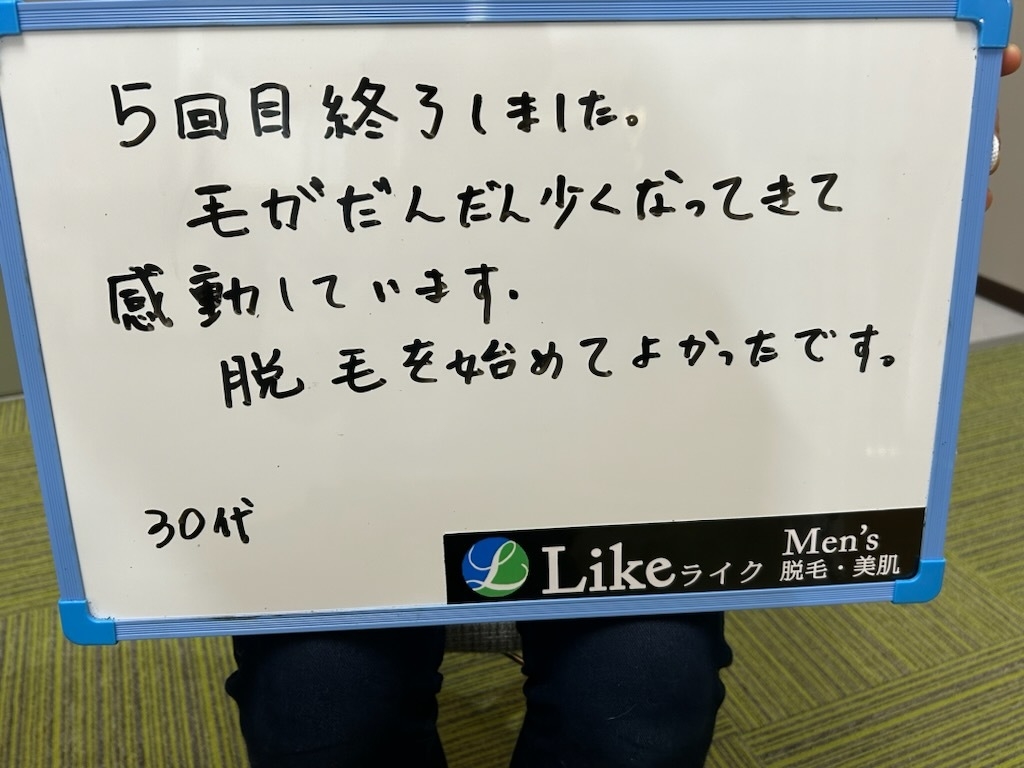 5回目終了しました。
毛がだんだん少くなってきて
感動しています.
脱毛を始めてよかったです。
30代
L Likeライク Men's 脱毛・美肌